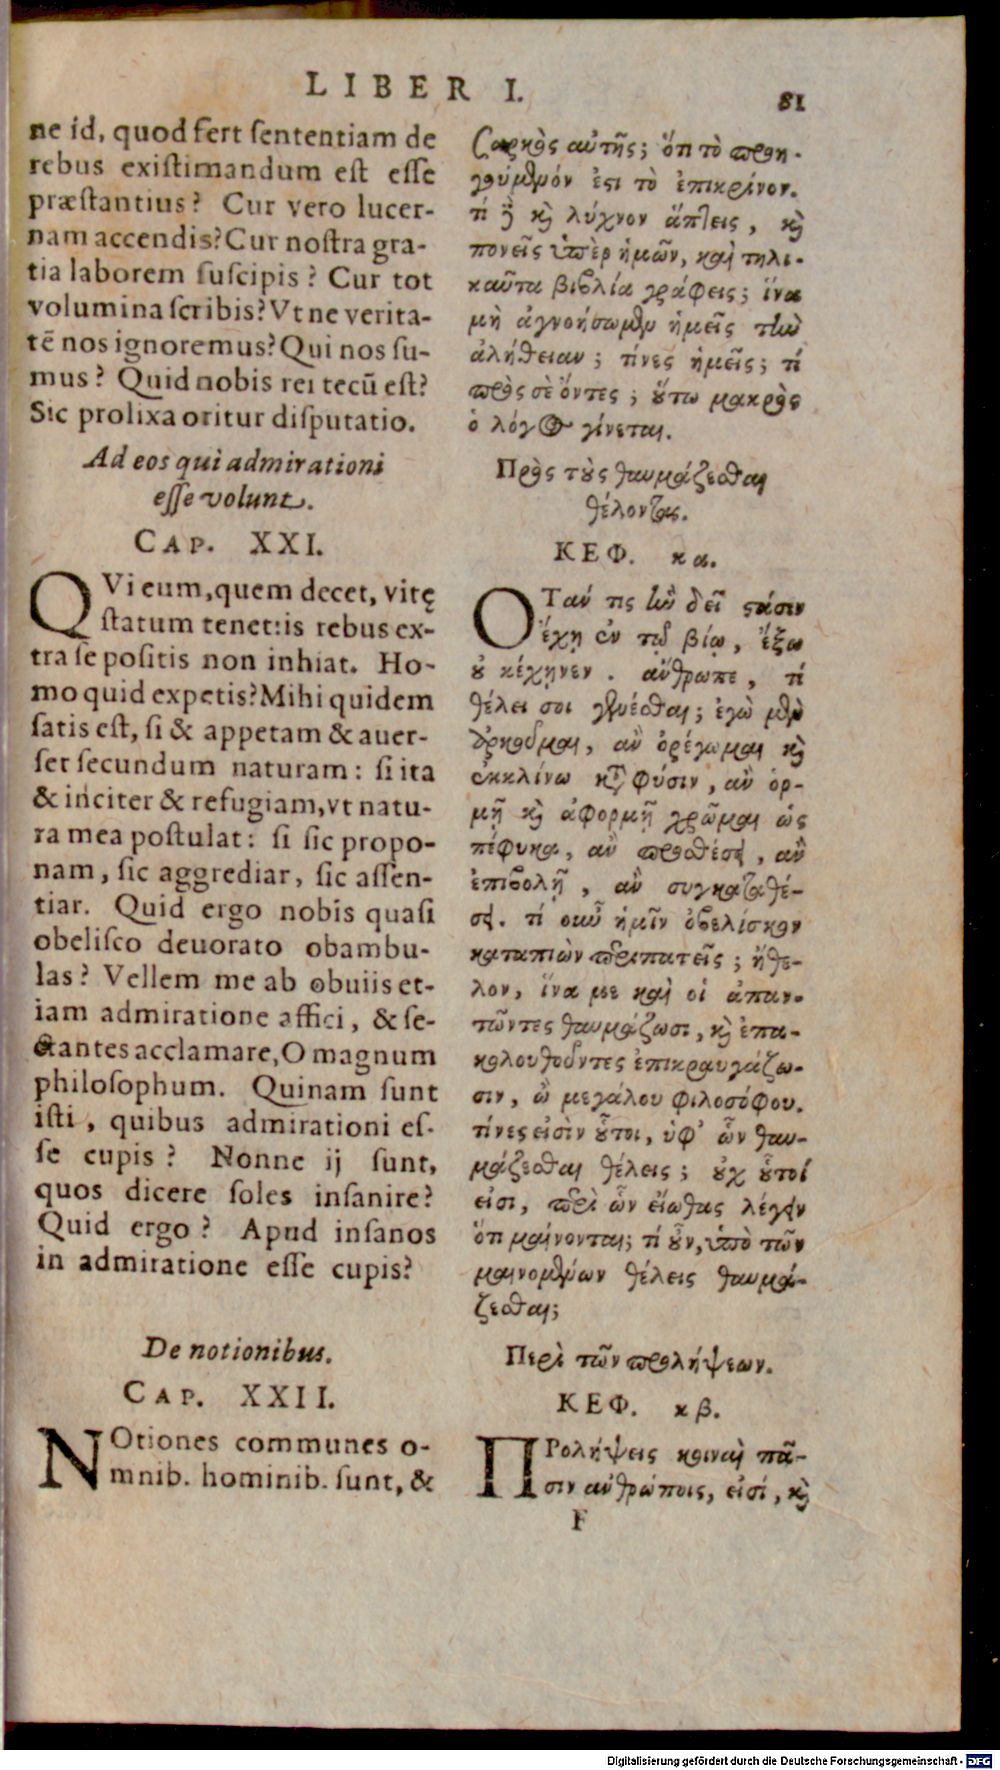 LIBER I.
81
ne id, quod fert sententiam de
rebus existimandum est esse
præstantius? Cur vero lucer-
nam accendis? Cur nostra gra-
tia laborem suscipis? Cur tot
volumina scribis? Vt ne verita-
tē nos ignoremus? Qui nos su-
mus? Quid nobis rei tecū est?
Sic prolixa oritur disputatio.
Ad eos qui admirationi
esse volunt.
CAP. XXI.
QVi eum, quem decet, vitę
statum tenet: is rebus ex-
tra se positis non inhiat. Ho-
mo quid expetis? Mihi quidem
satis est, si & appetam & auer-
ser secundum naturam: si ita
& inciter & refugiam, vt natu-
ra mea postulat: si sic propo-
nam, sic aggrediar, sic assen-
tiar. Quid ergo nobis quasi
obelisco deuorato obambu-
las? Vellem me ab obuiis et-
iam admiratione affici, & se-
ctantes acclamare, O magnum
philosophum. Quinam sunt
isti, quibus admirationi es-
se cupis? Nonne ij sunt,
quos dicere soles insanire?
Quid ergo? Apud insanos
in admiratione esse cupis?
De notionibus.
CAP. XXII.
NOtiones communes o-
mnib. hominib. sunt, &
σαρκὸς αὐτῆς; ὅτι τὸ προη-
γούμενόν ἐστι τὸ ἐπικρίνον.
τί δὲ καὶ λύχνον ἅπτεις, καὶ
πονεῖς ὑπὲρ ἡμῶν, καὶ τηλι-
καῦτα βιβλία γράφεις; ἵνα
μὴ ἀγνοήσωμεν ἡμεῖς τὴν
ἀλήθειαν; τίνες ἡμεῖς; τί
πρὸς σὲ ὄντες; οὕτω μακρὸς
ὁ λόγος γίνεται.
Πρὸς τοὺς θαυμάζεσθαι
θέλοντας.
ΚΕΦ. κα.
ΟΤαν τις ἣν δεῖ στάσιν
ἔχῃ ἐν τῷ βίῳ, ἔξω
οὐ κέχηνεν. ἄνθρωπε, τί
θέλει σοι γενέσθαι; ἐγὼ μὲν
ἀρκοῦμαι, ἂν ὀρέγωμαι καὶ
ἐκκλίνω κατὰ φύσιν, ἂν ὁρ-
μῇ καὶ ἀφορμῇ χρῶμαι ὡς
πέφυκα, ἂν προθέσει, ἂν
ἐπιβολῇ, ἂν συγκαταθέ-
σει. τί οὖν ἡμῖν ὀβελίσκον
καταπιὼν περιπατεῖς; ἤθε-
λον, ἵνα με καὶ οἱ ἀπαν-
τῶντες θαυμάζωσι, καὶ ἐπα-
κολουθοῦντες ἐπικραυγάζω-
σιν, ὢ μεγάλου φιλοσόφου.
τίνες εἰσὶν οὗτοι, ὑφ' ὧν θαυ-
μάζεσθαι θέλεις; οὐχ οὗτοί
εἰσι, περὶ ὧν εἴωθας λέγειν
ὅτι μαίνονται; τί οὖν, ὑπὸ τῶν
μαινομένων θέλεις θαυμά-
ζεσθαι;
Περὶ τῶν προλήψεων.
ΚΕΦ. κβ.
ΠΡολήψεις κοιναὶ πᾶ-
σιν ἀνθρώποις, εἰσί, καὶ
F
Digitalisierung gefördert durch die Deutsche Forschungsgemeinschaft - DFG